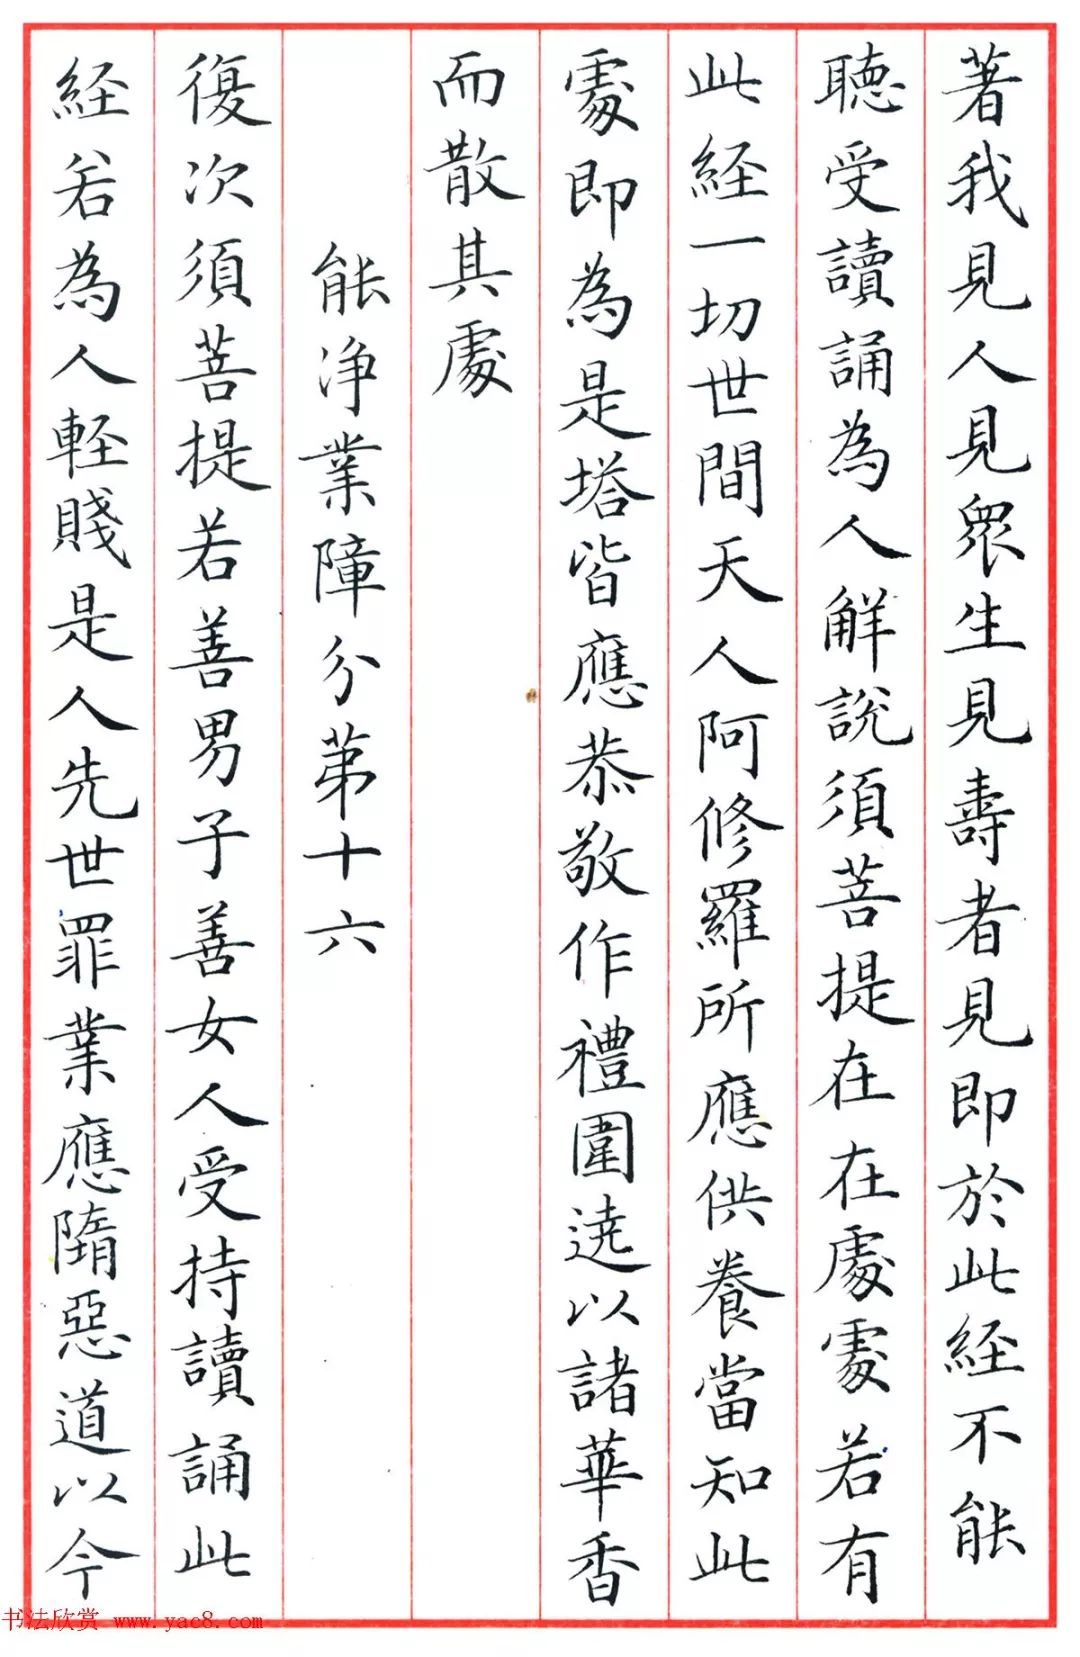 著我見人見眾生見壽者見即於此経不能
聽受讀誦為人解說須菩提在在處處若有
此経一切世間天人阿修羅所應供養當知此
處即為是塔皆應恭敬作禮圍遶以諸華香
而散其處
能淨業障分第十六
復次須菩提若善男子善女人受持讀誦此
経若為人軽賤是人先世罪業應隋惡道以今
书法欣赏 www.yac8.com